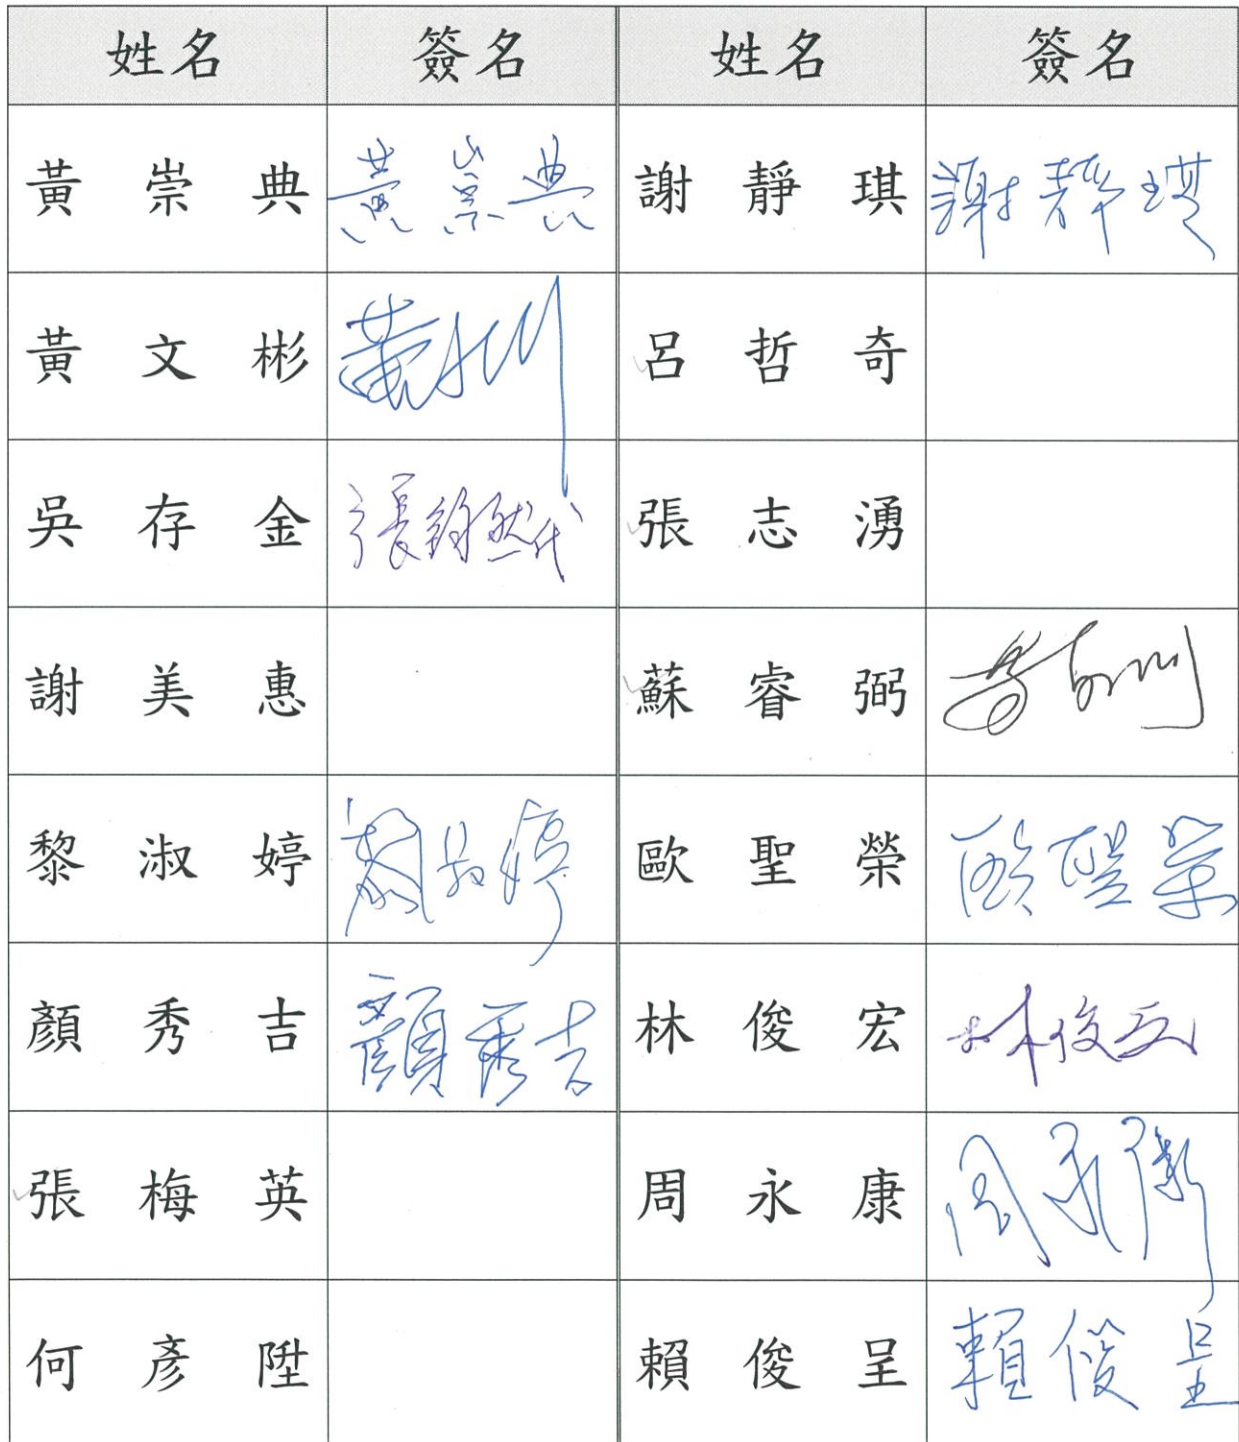 姓名 簽名 姓名 簽名
黃崇典 黃崇典 謝靜琪 謝靜琪
黃文彬 呂哲奇
吳存金 張志湧
謝美惠 蘇睿弼
黎淑婷 歐聖榮 歐聖榮
顏秀吉 顏秀吉 林俊宏 林俊宏
張梅英 周永康
何彥陞 賴俊呈 賴俊呈